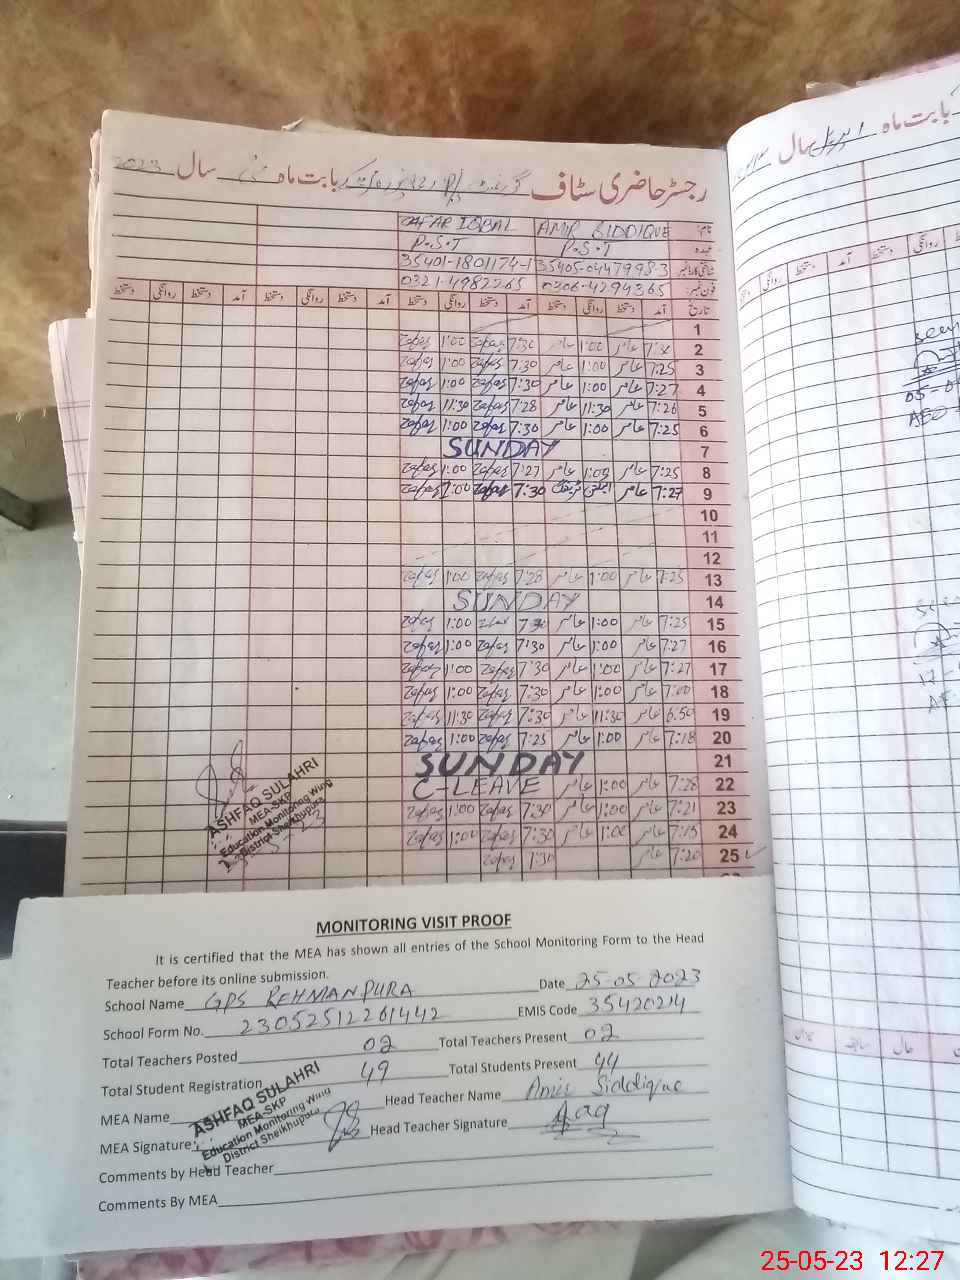 رجسٹر حاضری سٹاف بابت ماہ مئی سال 2023
نام: AMIR SIDDIQUE ZAFAR IQBAL
عہدہ P.S.T P.S.T
شناختی کارڈ نمبر 35405-0447998-3 35401-1801174-1
فون نمبر: 0306-4294365 0321-4982265
تاریخ آمد دستخط روانگی دستخط آمد دستخط روانگی دستخط آمد دستخط روانگی دستخط آمد دستخط روانگی دستخط
1
2 7:30 عامر 1:00 عامر 7:30 Zafar 1:00 Zafar
3 7:25 عامر 1:00 عامر 7:30 Zafar 1:00 Zafar
4 7:27 عامر 1:00 عامر 7:30 Zafar 1:00 Zafar
5 7:26 عامر 11:30 عامر 7:28 Zafar 11:30 Zafar
6 7:25 عامر 1:00 عامر 7:30 Zafar 1:00 Zafar
7 SUNDAY
8 7:25 عامر 1:00 عامر 7:27 Zafar 1:00 Zafar
9 7:27 عامر 7:30 Zafar 1:00 Zafar
10
11
12
13 7:25 عامر 1:00 عامر 7:28 Zafar 1:00 Zafar
14 SUNDAY
15 7:25 عامر 1:00 عامر 7:30 Zafar 1:00 Zafar
16 7:27 عامر 1:00 عامر 7:30 Zafar 1:00 Zafar
17 7:27 عامر 1:00 عامر 7:30 Zafar 1:00 Zafar
18 7:00 عامر 1:00 عامر 7:30 Zafar 1:00 Zafar
19 6:50 عامر 11:30 عامر 7:30 Zafar 11:30 Zafar
20 7:18 عامر 1:00 عامر 7:25 Zafar 1:00 Zafar
21 SUNDAY
22 7:28 عامر 1:00 عامر C-LEAVE
23 7:21 عامر 1:00 عامر 7:30 Zafar 1:00 Zafar
24 7:15 عامر 1:00 عامر 7:30 Zafar 1:00 Zafar
25 7:20 عامر 7:30 Zafar
ASHFAQ SULAHRI
MEA-SKP
Education Monitoring Wing
District Sheikhupura
MONITORING VISIT PROOF
It is certified that the MEA has shown all entries of the School Monitoring Form to the Head
Teacher before its online submission.
School Name GPS REHMANPURA Date 25-05-2023
School Form No. 23052512261442 EMIS Code 35420214
Total Teachers Posted 02 Total Teachers Present 02
Total Student Registration 49 Total Students Present 44
MEA Name Head Teacher Name Amir Siddique
ASHFAQ SULAHRI
MEA-SKP
Education Monitoring Wing
District Sheikhupura
MEA Signature Head Teacher Signature
Comments by Head Teacher
Comments By MEA
بابت ماہ سال
آمد دستخط روانگی دستخط
سابقہ حال
25-05-23 12:27